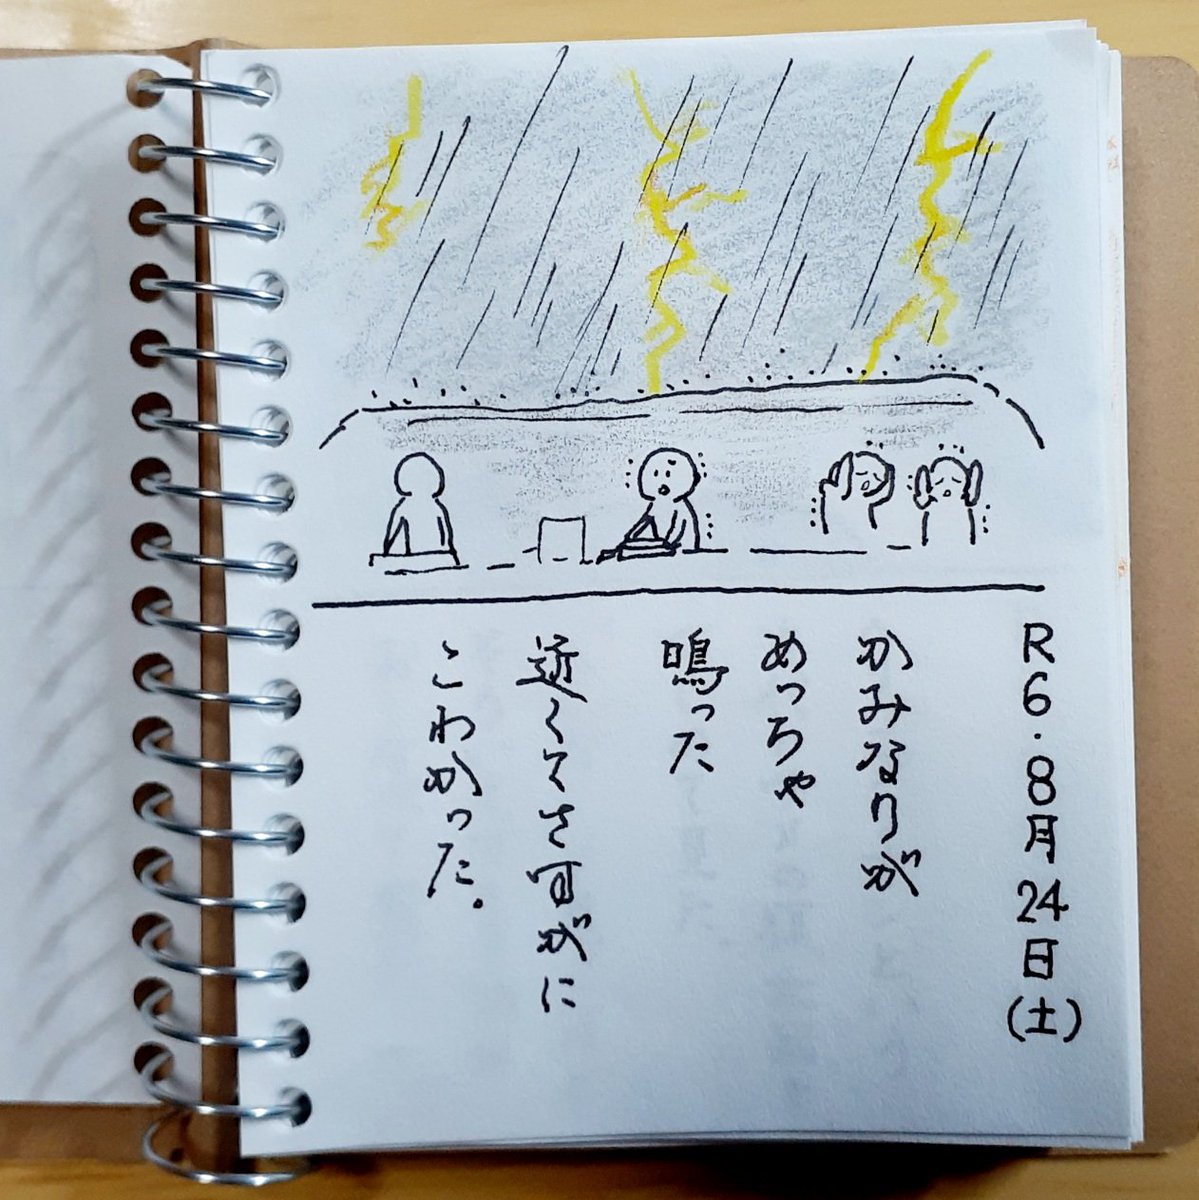 R6.8月24日(土)
かみなりが
めっちゃ
鳴った
近くてさすがに
こわかった。